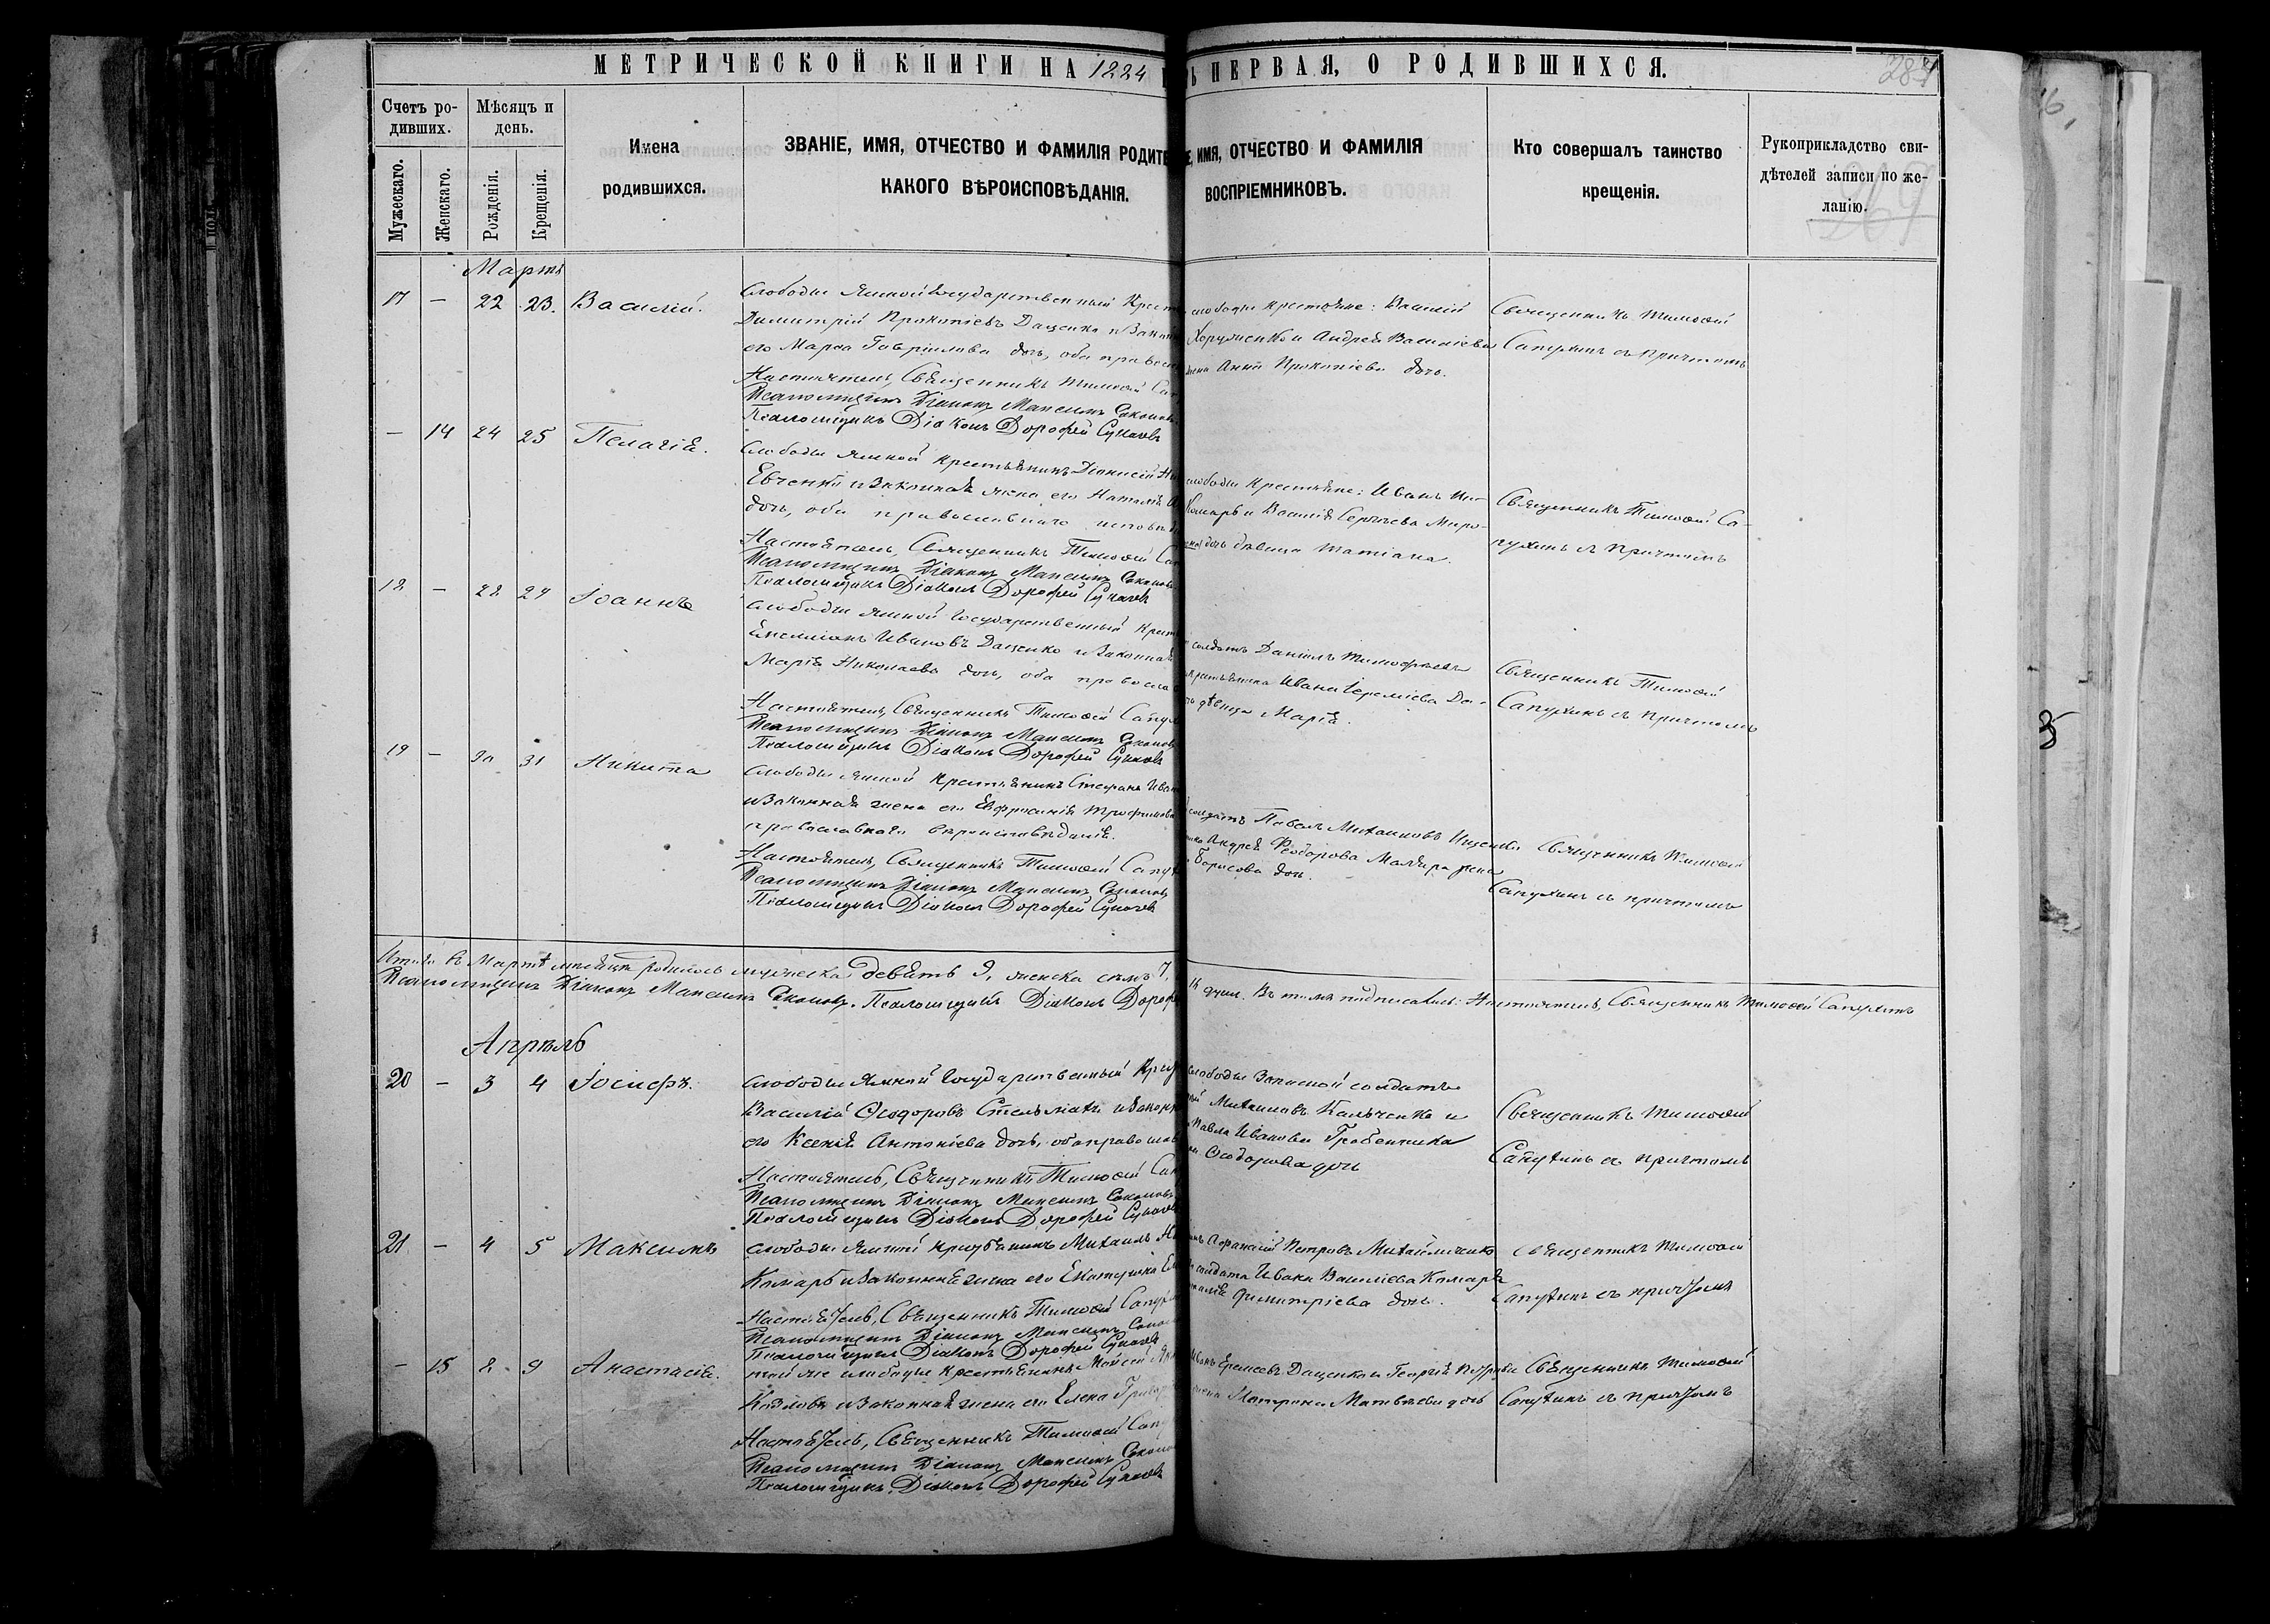 МЕТРИЧЕСКОЙ КНИГИ НА 1884 Ь ПЕРВАЯ, О РОДИВШИХСЯ.
287
Счетъ родивших.
Мужескаго.
Женскаго.
Мѣсяцъ и день.
Рожденія.
Крещенія.
Имена
родившихся.
ЗВАНІЕ, ИМЯ, ОТЧЕСТВО И ФАМИЛІЯ РОДИТЕ
КАКОГО ВѢРОИСПОВѢДАНІЯ.
Е, ИМЯ, ОТЧЕСТВО И ФАМИЛІЯ
ВОСПРІЕМНИКОВЪ.
Кто совершалъ таинство
крещенія.
Рукоприкладство сви-
дѣтелей записи по же-
ланію.
269
Мартъ
17 — 22 23. Василій.
Слободы Ямной Государственный Крест
Димитрій Прокопіевъ Даценко и Законн
его Марѳа Гавріилова дочь, оба правосл
Настоятель, Священникъ Тимоѳей Сап
Псаломщикъ Діаконъ Максимъ
Псаломщикъ Діаконъ Дорофей Сукачев
слободы крестьяне: Василій
Хоруженко и Андрея Василіева
жена Анна Прокопіева дочь.
Священникъ Тимоѳей
Сапухинъ съ причтомъ
— 14 24 25 Пелагія.
Слободы Ямной крестьянинъ Діонисій
Евченко и Законная жена его Наталія
дочь, оба православнаго исповѣд
Настоятель, Священникъ Тимоѳей Сап
Псаломщикъ Діаконъ Максимъ
Псаломщикъ Діаконъ Дорофей Сукачев
слободы крестьяне: Иванъ
Комарь и Василія Сергѣева Миро-
дочь дѣвица Татіана.
Священникъ Тимоѳей Са-
пухинъ съ причтомъ
18 — 28 29 Іоаннъ
Слободы Ямной Государственный Крест
Емеліанъ Ивановъ Даценко и Законная
Марія Николаева дочь, оба правосла
Настоятель, Священникъ Тимоѳей Сапух
Псаломщикъ Діаконъ Максимъ
Псаломщикъ Діаконъ Дорофей Сукачев
солдатъ Даніилъ Тимофѣевъ
крестьянина Ивана Іереміева Да-
дѣвица Марія.
Священникъ Тимоѳей
Сапухинъ съ причтомъ
19 — 30 31 Никита
Слободы Ямной крестьянинъ Стефанъ Иван
и Законная жена его Евфросинія Трофимова
православнаго вѣроисповѣданія.
Настоятель, Священникъ Тимоѳей Сапух
Псаломщикъ Діаконъ Максимъ
Псаломщикъ Діаконъ Дорофей Сукачев
солдатъ Павелъ Михаиловъ Ищенко
Андрея Ѳеодорова Маляра жена
Борисова дочь.
Священникъ Тимоѳей
Сапухинъ съ причтомъ
Итого въ Мартѣ мѣсяцѣ родилось мужеска девять 9, женска семь 7,
16 душ. Въ томъ подписались: Настоятель, Священникъ Тимоѳей Сапухинъ
Псаломщикъ Діаконъ Максимъ Псаломщикъ Діаконъ Дороф
Апрѣль
20 — 3 4 Іосифъ.
Слободы Ямной Государственный Крест
Василій Ѳеодоровъ Стельмахъ и законн
его Ксенія Антоніева дочь, оба правосла
Настоятель, Священникъ Тимоѳей Сап
Псаломщикъ Діаконъ Максимъ
Псаломщикъ Діаконъ Дорофей Сукачев
слободы Запасной солдатъ
Михаиловъ Кальченко и
Павла Иванова Гребенника
Ѳеодорова дочь
Священникъ Тимоѳей
Сапухинъ съ причтомъ
21 — 4 5 Максимъ
Слободы Ямной крестьянинъ Михаилъ
Комарь и Законная жена его Екатерина
Настоятель, Священникъ Тимоѳей Сапух
Псаломщикъ Діаконъ Максимъ
Псаломщикъ Діаконъ Дорофей Сукачев
Аѳанасій Петровъ Михайличенко
солдата Ивана Василіева Комаря
Димитріева дочь.
Священникъ Тимоѳей
Сапухинъ съ причтомъ
— 15 8 9 Анастасія.
той же слободы Крестьянинъ Моисей
Козловъ и Законная жена его Елена Григор
Настоятель, Священникъ Тимоѳей Сап
Псаломщикъ Діаконъ Максимъ
Псаломщикъ Діаконъ Дорофей Сукачев
Еремѣевъ Даценко и Георгія Петрова
жена Матрона Матвѣева дочь
Священникъ Тимоѳей
Сапухинъ съ причтомъ